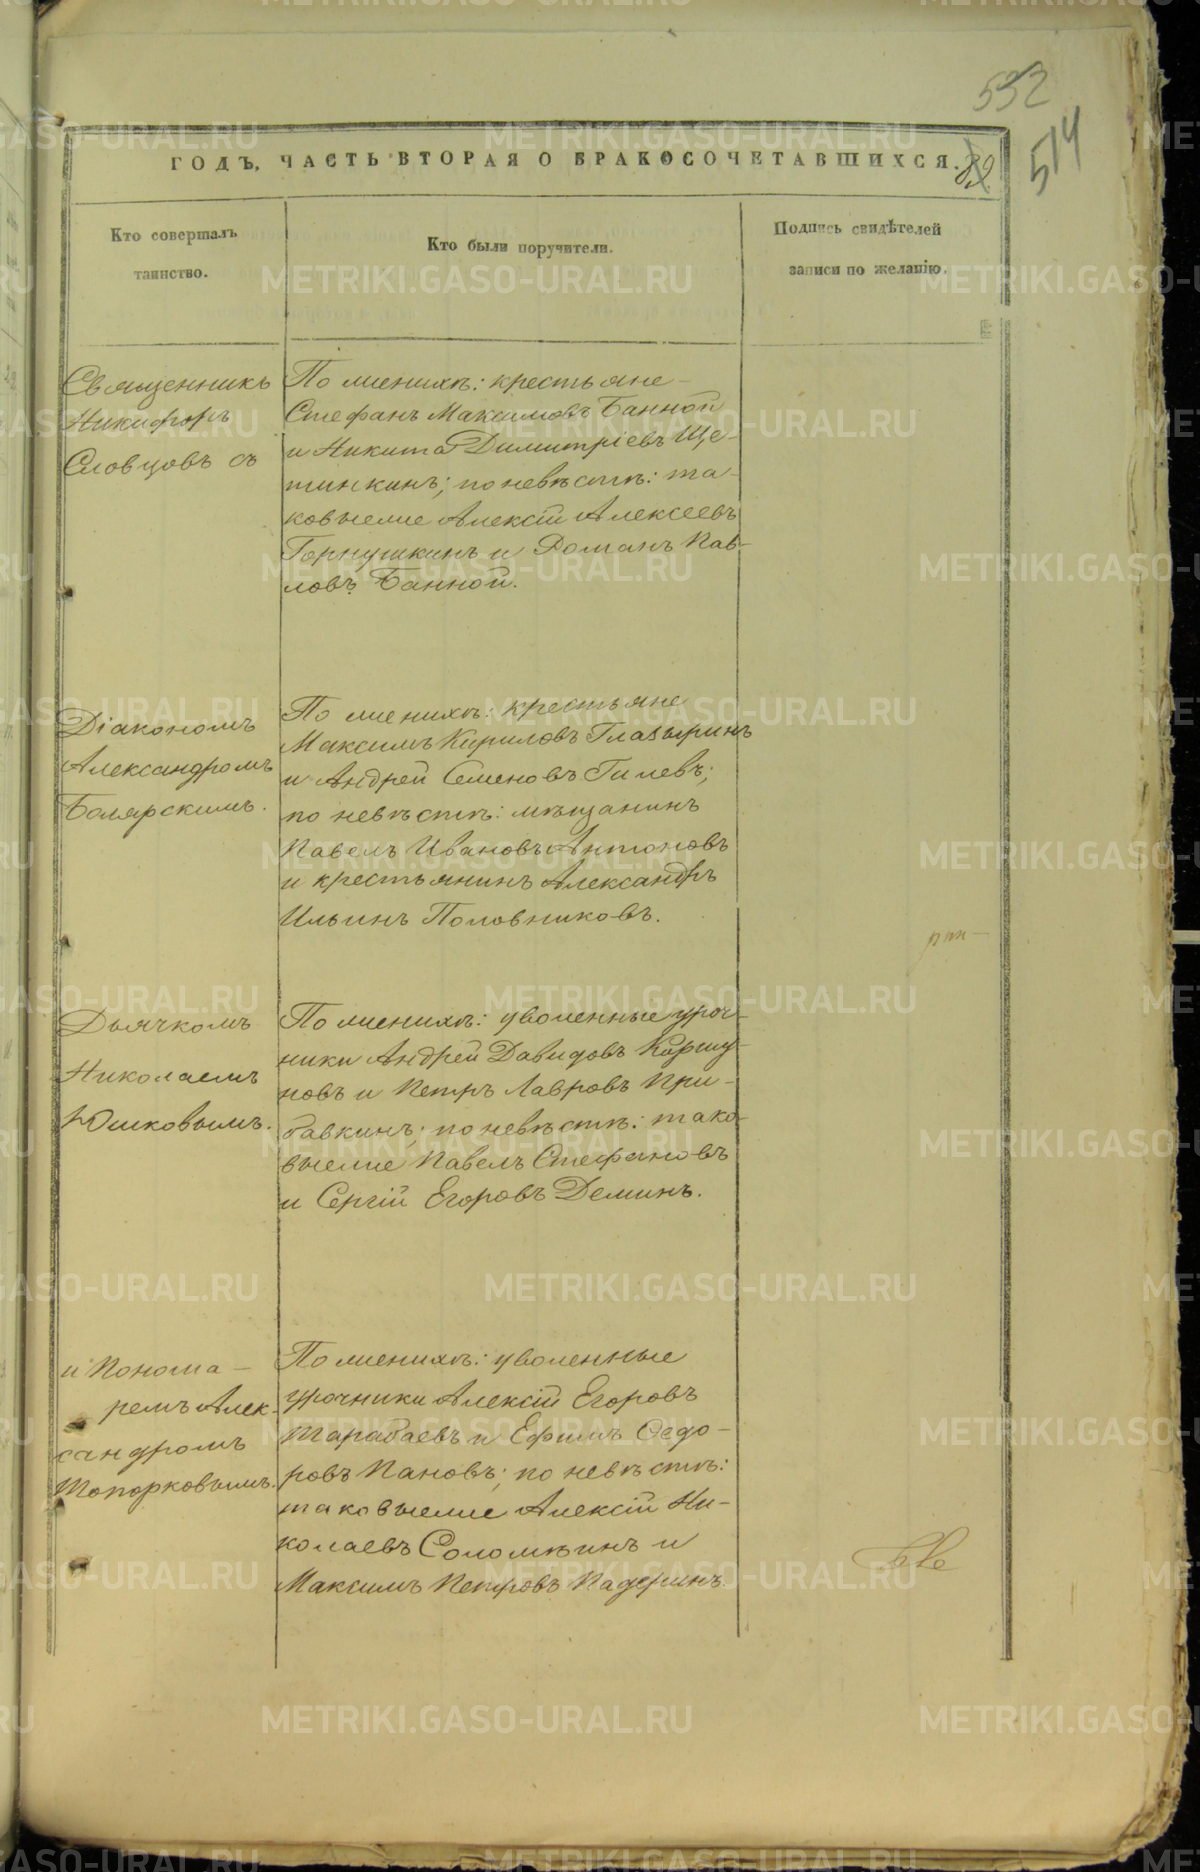 532
514
ГОДЪ, ЧАСТЬ ВТОРАЯ О БРАКОСОЧЕТАВШИХСЯ.
Кто совершалъ
таинство.
Кто были поручители.
Подпись свидѣтелей
записи по желанію.
Священникъ
Никифоръ
Словцовъ съ
По женихѣ: крестьяне
Стефанъ Максимовъ Банной
и Никита Димитріевъ Ще-
тинкинъ; по невѣстѣ: та-
ковыеже Алексій Алексеевъ
Горнушкинъ и Романъ Пав-
ловъ Банной.
Діакономъ
Александромъ
Боярскимъ.
По женихѣ: крестьяне
Максимъ Кириловъ Глазыринъ
и Андрей Семеновъ Гилевъ;
по невѣстѣ: мѣщанинъ
Павелъ Ивановъ Антоновъ
и крестьянинъ Александръ
Ильинъ Половниковъ.
Дьячкомъ
Николаемъ
Юшковымъ.
По женихѣ: уволенные уроч-
ники Андрей Давидовъ Коршу-
новъ и Петръ Лавровъ При-
бавкинъ; по невѣстѣ: тако-
выеже Павелъ Стефановъ
и Сергій Егоровъ Деминъ.
и Понома-
ремъ Алек-
сандромъ
Топорковымъ.
По женихѣ: уволенные
урочники Алексій Егоровъ
Тарабаевъ и Ефимъ Ѳедо-
ровъ Пановъ; по невѣстѣ:
таковыеже Алексій Ни-
колаевъ Соломѣинъ и
Максимъ Петровъ Падеринъ.
METRIKI.GASO-URAL.RU